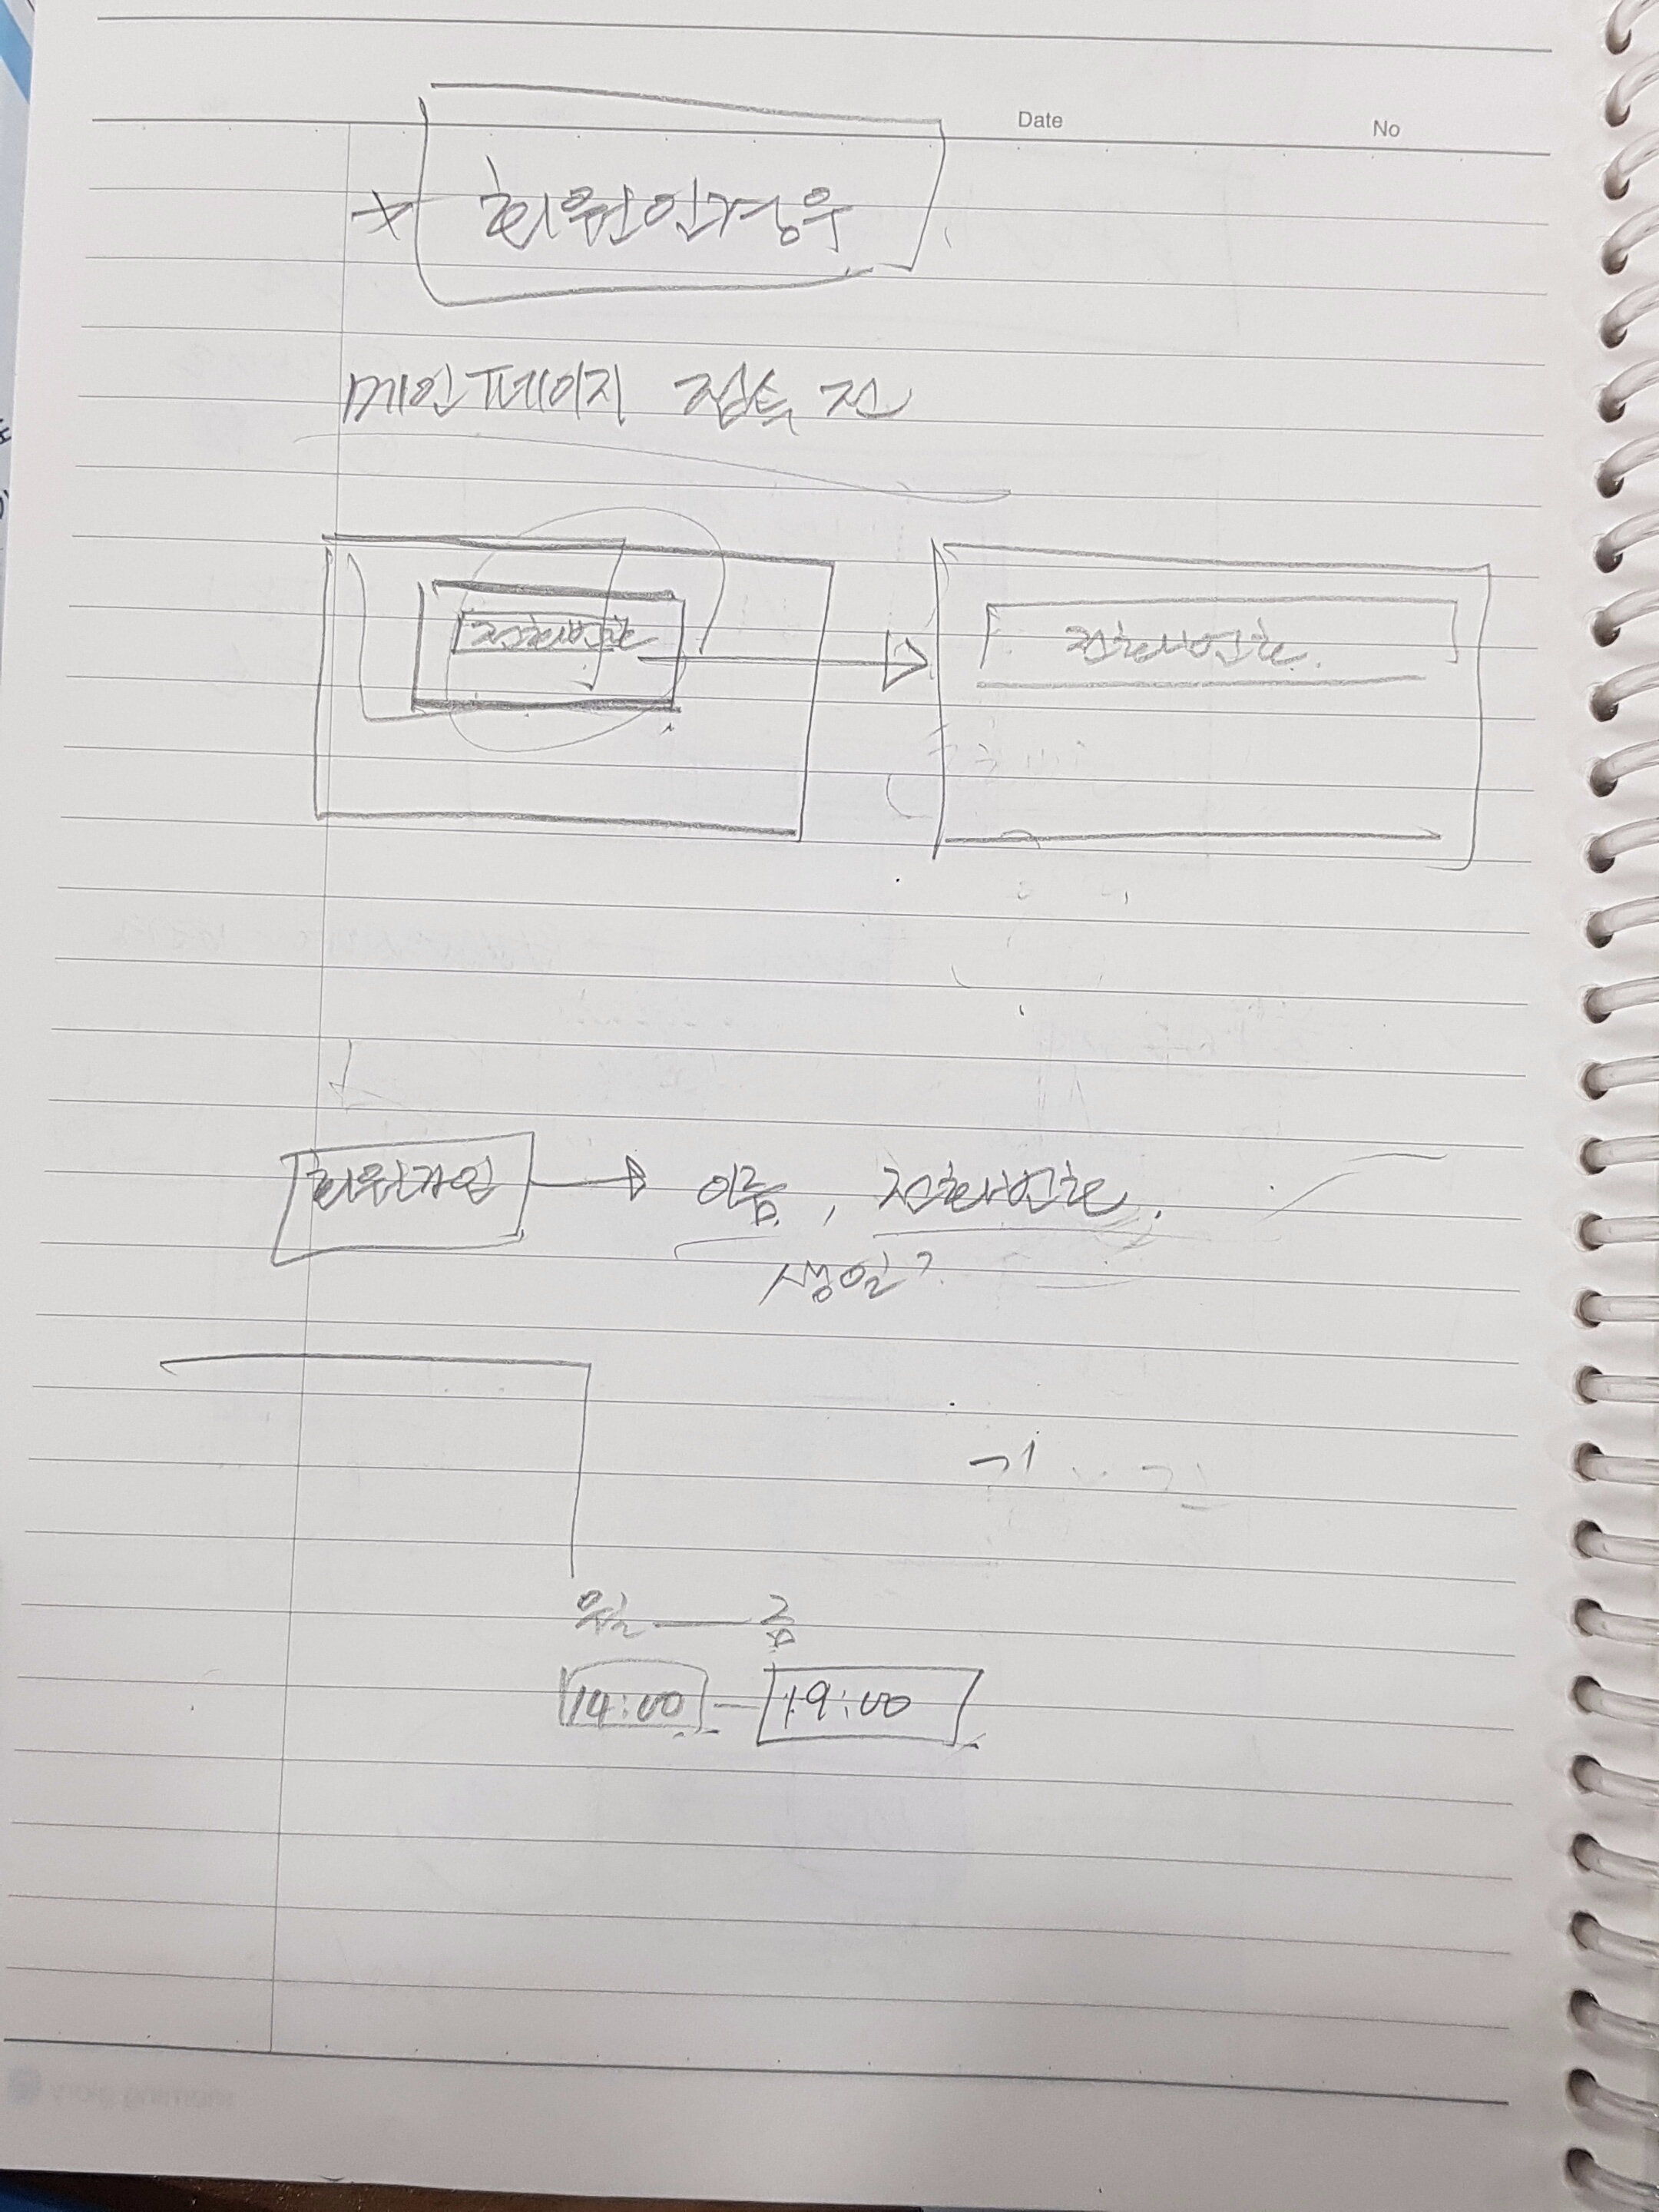 Date No
* 회원인경우
메인페이지 접속 전
전화번호 전화번호.
회원가입 이름, 전화번호.
생일?
월 — 금
14:00 - 19:00